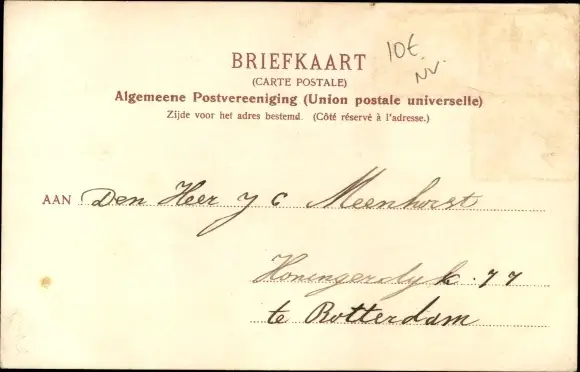 BRIEFKAART
(CARTE POSTALE)
Algemeene Postvereeniging (Union postale universelle)
Zijde voor het adres bestemd. (Côté réservé à l'adresse.)
10€
NV.
AAN Den Heer J C Meenhorst
Honingerdyk 77
te Rotterdam